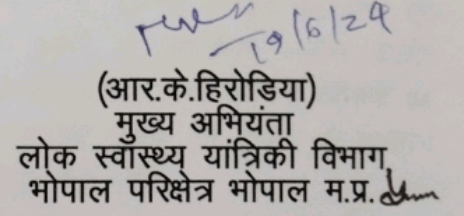 19/6/24
(आर.के.हिरोडिया)
मुख्य अभियंता
लोक स्वास्थ्य यांत्रिकी विभाग
भोपाल परिक्षेत्र भोपाल म.प्र.